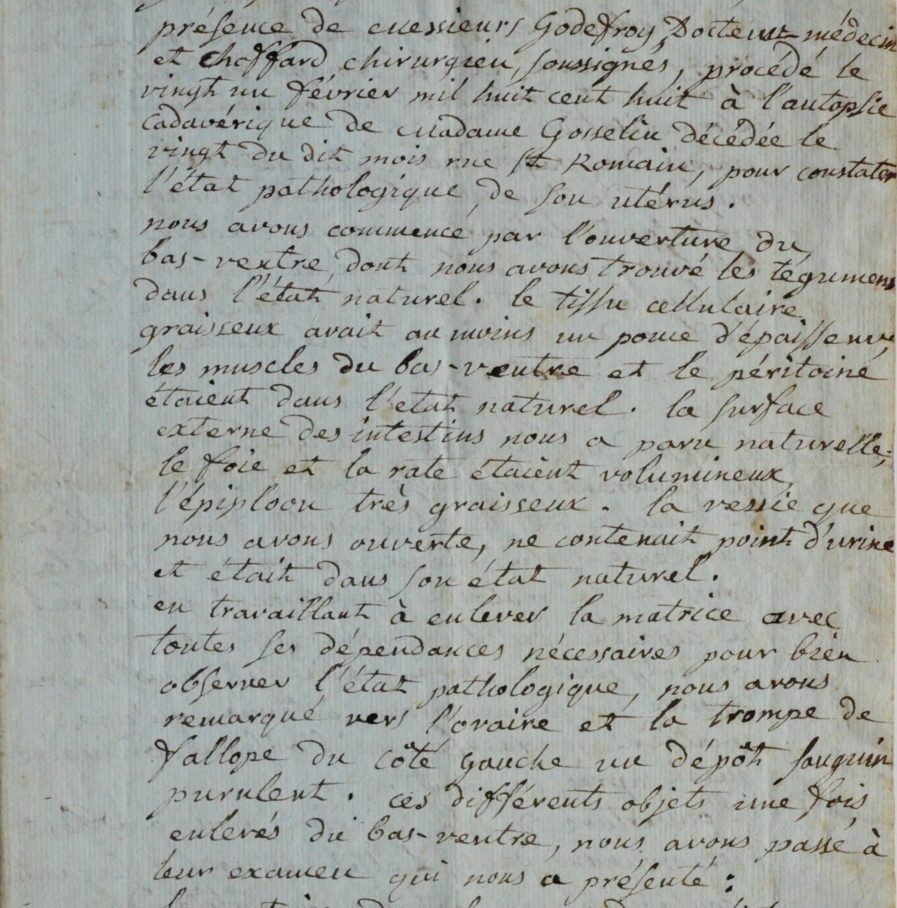 présence de messieurs Godefroy Docteur-médecin
et choffard chirurgien, soussignés, procédé le
vingt un février mil huit cent huit à l'autopsie
cadavérique de Madame Gosselin décédée le
vingt du dit mois rue St Romain, pour constater
l'état pathologique de son utérus.
nous avons commencé par l'ouverture du
bas-ventre dont nous avons trouvé les tégumens
dans l'état naturel. le tissu cellulaire
graisseux avait au moins un pouce d'épaisseur,
les muscles du bas-ventre et le péritoine
étaient dans l'etat naturel. la surface
externe des intestins nous a paru naturelle;
le foie et la rate étaient volumineux,
l'épiploon très graisseux. la vessie que
nous avons ouverte, ne contenait point d'urine
et était dans son état naturel.
en travaillant à enlever la matrice avec
toutes ses dépendances nécessaires pour bien
observer l'état pathologique, nous avons
remarqué vers l'ovaire et la trompe de
fallope du côté gauche un dépôt sanguin
purulent. ces différents objets une fois
enlevés du bas-ventre, nous avons passé à
leur examen qui nous a présenté: